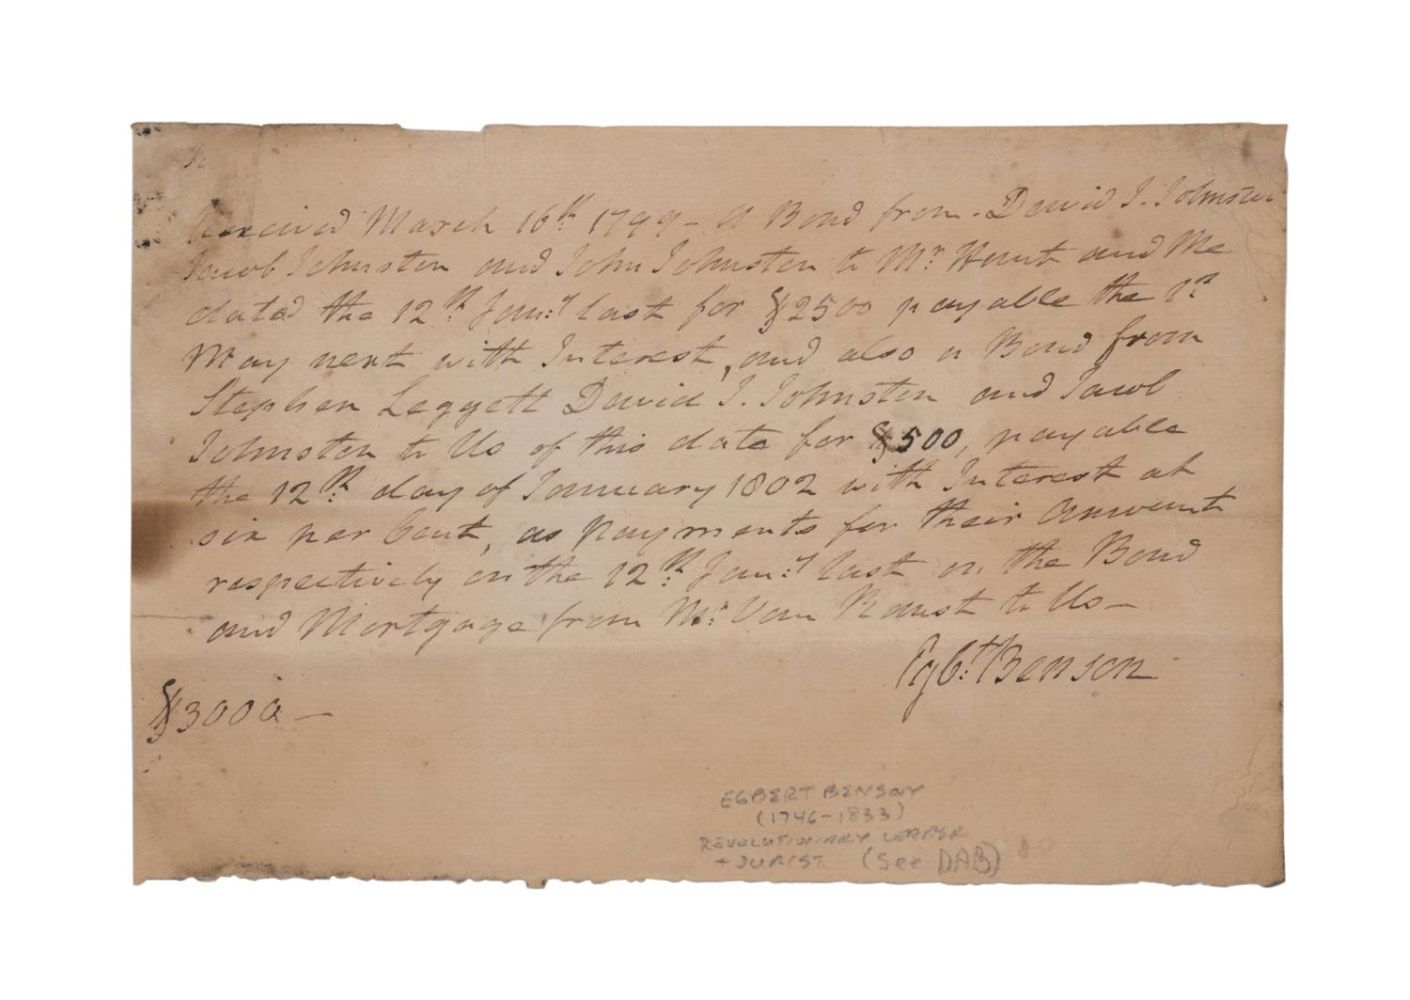 Received March 16th 1799 - A Bond from David J. Johnston
Jacob Johnston and John Johnston to Mr. Hunt and Me
dated the 12th Jany last for $2500 payable the 1st
May next with Interest, and also a Bond from
Stephen Leggett David J. Johnston and Jacob
Johnston to Us of this date for $500, payable
the 12th day of January 1802 with Interest at
six per Cent, as payments for their Amount
respectively on the 12th Jany last on the Bond
and Mortgage from Mr. Van to Us —
Egbt. Benson
$3000 —
EGBERT BENSON
(1746-1833)
REVOLUTIONARY LEADER
+ JURIST (See DAB)